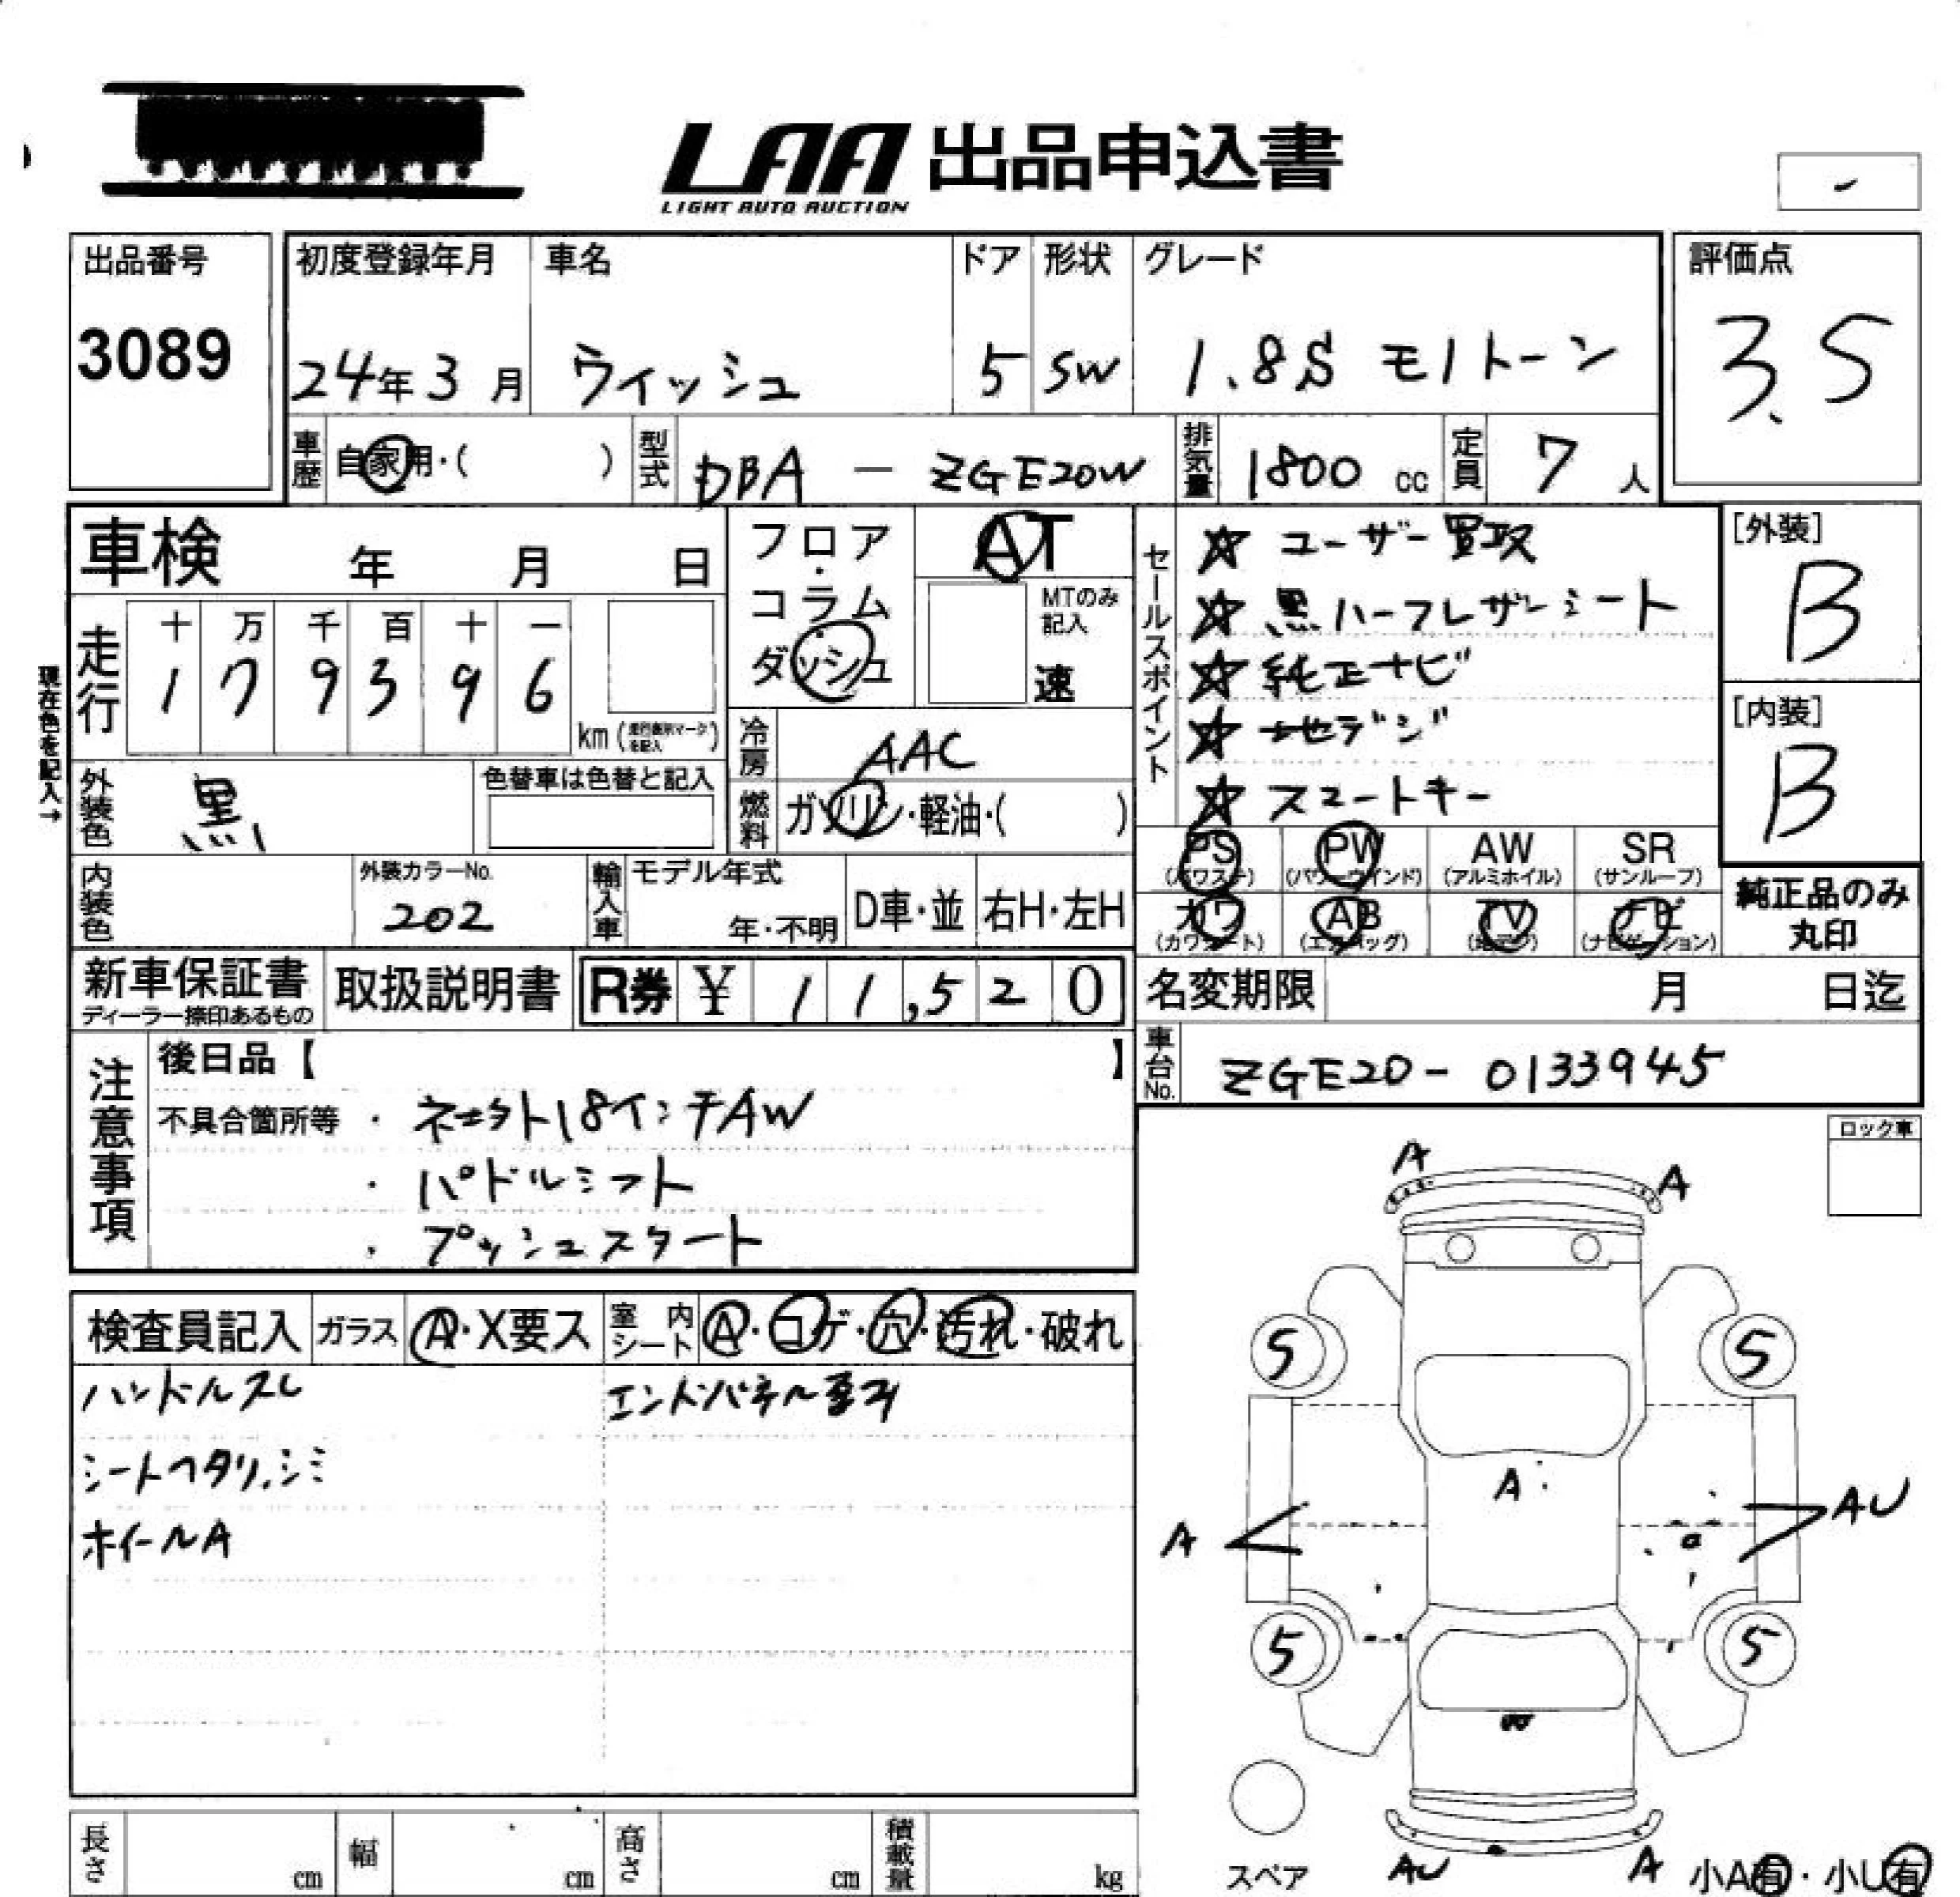 LAA 出品申込書
LIGHT AUTO AUCTION
出品番号
3089
初度登録年月
24年3月
車名
ウィッシュ
ドア
5
形状
SW
グレード
1.8S モノトーン
評価点
3.5
車歴
自家用・( )
型式
DBA - ZGE20W
排気量
1800 cc
定員
7 人
車検 年 月 日
走行
十 万 千 百 十 一
1 7 9 3 9 6
km
現在色を記入→
フロア・コラム・ダッシュ
AT
MTのみ記入
速
冷房
AAC
燃料
ガソリン・軽油・( )
外装色
黒
色替車は色替と記入
内装色
外装カラーNo.
202
輸入車
モデル年式
年・不明
D車・並
右H・左H
セールスポイント
☆ ユーザー買取
☆ 黒ハーフレザーシート
☆ 純正ナビ
☆ 地デジ
☆ スマートキー
[外装]
B
[内装]
B
PS
(パワステ)
PW
(パワーウインド)
AW
(アルミホイル)
SR
(サンルーフ)
カワ
(カワシート)
AB
(エアバッグ)
TV
(地デジ)
ナビ
(ナビゲーション)
純正品のみ
丸印
新車保証書
ディーラー捺印あるもの
取扱説明書
R券 ¥ 11,520
名変期限 月 日迄
車台No.
ZGE20-0133945
注意事項
後日品【 】
不具合箇所等
・18インチAW
・パドルシフト
・プッシュスタート
ロック車
検査員記入
ガラス
A・X要ス
室内シート
A・コゲ・穴・汚れ・破れ
ハンドルスレ
シートヘタリ、シミ
ホイールA
A
A
5
5
A
A
AU
5
5
AU
A
スペア
小A有・小U有
長さ cm
幅 cm
高さ cm
積載量 kg